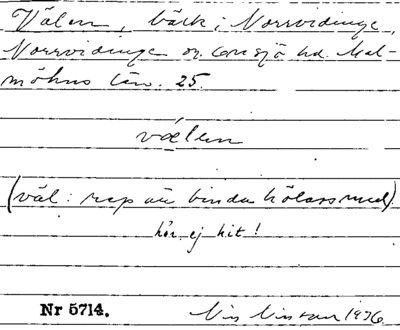 Välen, bäck i Norrvidinge,
Norrvidinge sn Onsjö hd. Mal-
möhus län. 25.
vælen
(väl: rep att binda hölass med)
hör ej hit!
Nr 5714.
1936